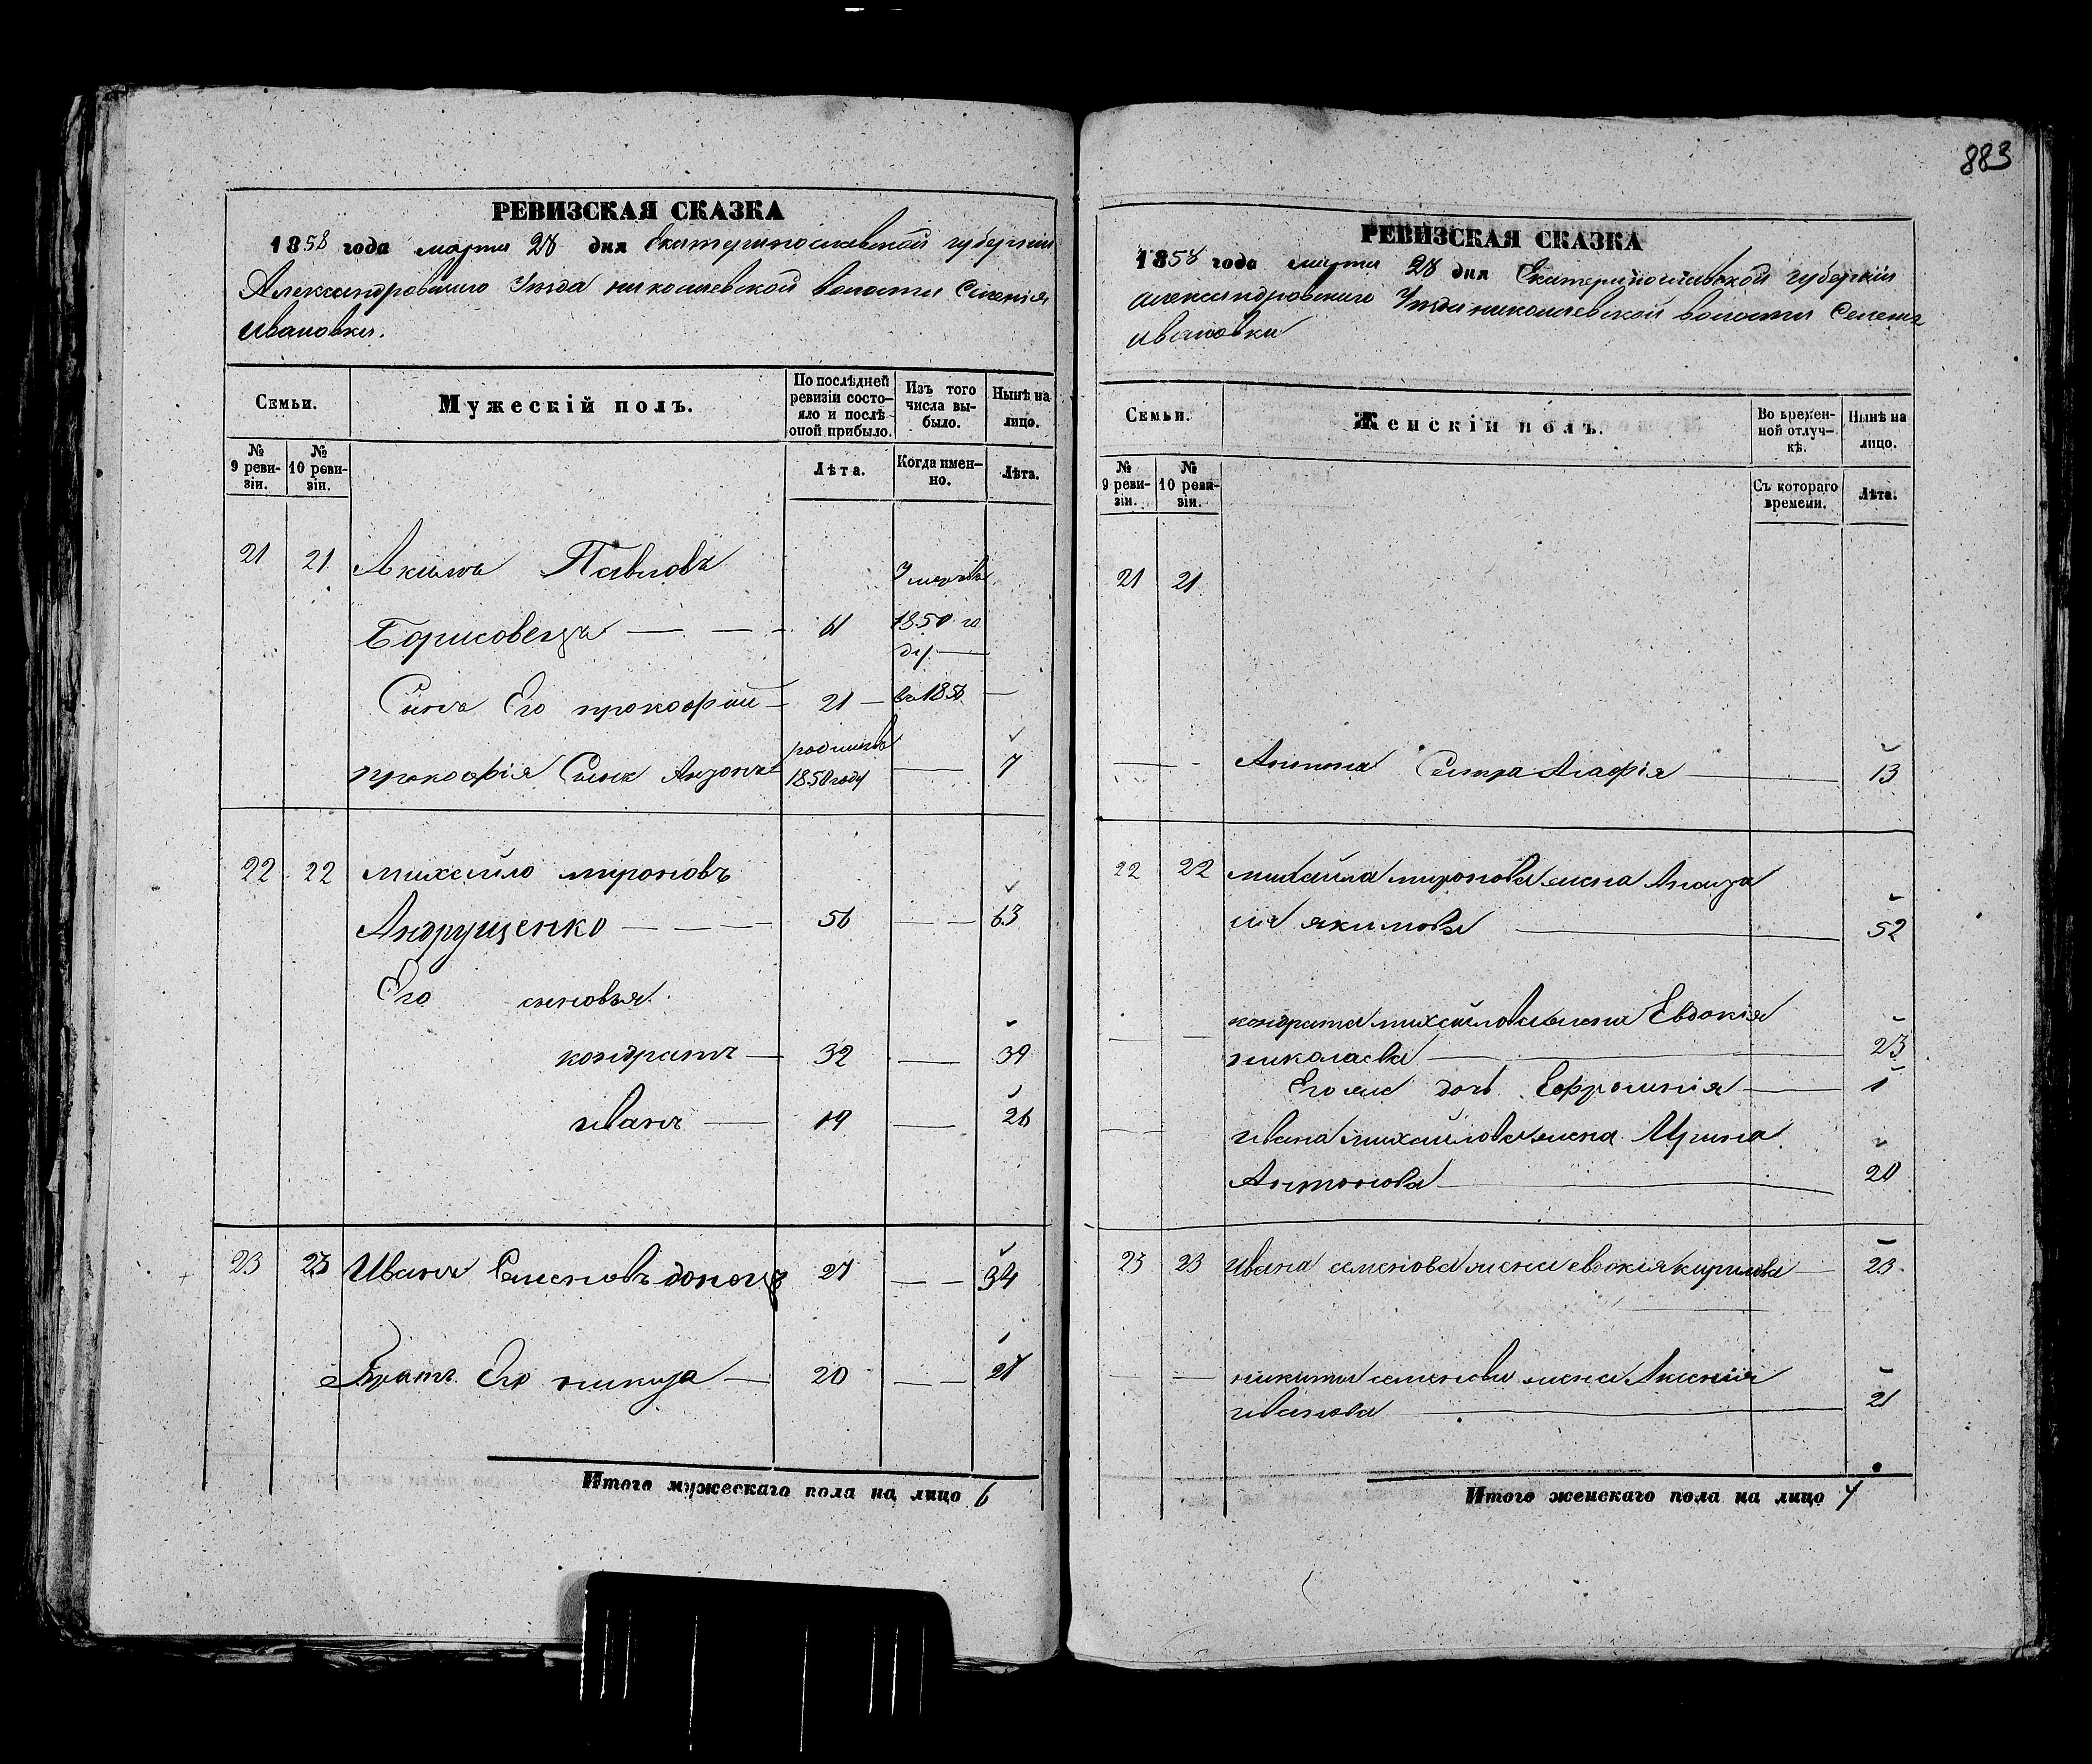 883
РЕВИЗСКАЯ СКАЗКА
1858 года марта 28 дня Екатеринославской губернии
Александровского Уезда николаевской волости Селенія
Ивановки.
Семьи.
Мужескій полъ.
По послѣдней ревизіи состо-яло и послѣ оной прибыло.
Изъ того числа вы-было.
Нынѣ на лицо.
№ 9 реви-зіи.
№ 10 реви-зіи.
Лѣта.
Когда имен-но.
Лѣта.
21 21 Акимъ Павловъ
Борисовецъ 61 1850 го
ду
Сынъ Его прокофий 21 въ 1856
родился
прокофія Сынъ Антонъ 1850 году 7
22 22 михайло мироновъ
Андрущенко 56 63
Его сыновья
кондратъ 32 39
иванъ 19 26
23 23 Иванъ Семеновъ донецъ 27 34
Братъ Его никита 20 27
Итого мужескаго пола на лицо 6
РЕВИЗСКАЯ СКАЗКА
1858 года марта 28 дня Екатеринославской губернии
александровского Уезда николаевской волости Селения
ивановки
Семьи.
Женскій полъ.
Во времен-ной отлуч-кѣ.
Нынѣ на лицо.
№ 9 реви-зіи.
№ 10 реви-зіи.
Съ котораго времени.
Лѣта.
21 21
Антона Сестра Агафія 13
22 22 михайла миронова жена
якимова 52
кондрата михайлова жена Евдокія
николаева 23
Его же дочь Ефросинія 1
ивана михайлова жена Ирина
Антонова 20
23 23 ивана семенова жена евдокія кирилова 23
никиты семенова жена Аксенія
иванова 21
Итого женскаго пола на лицо 7